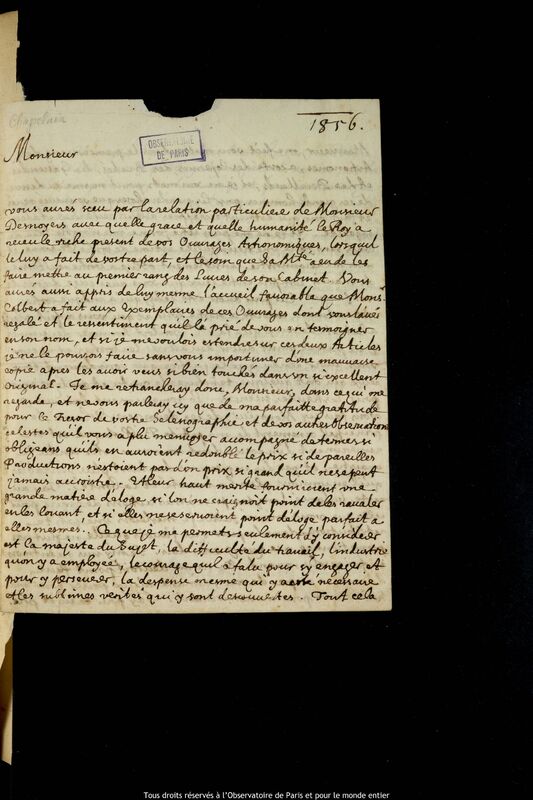 Chapelain
1856.
OBSERVATOIRE
DE PARIS
Monsieur
vous aurés sceu par la relation particuliere de Monsieur
Desnoyers avec quelle grace et quelle humanité le Roy a
receu le riche present de vos Ouvrages Astronomiques, lors qu'il
le luy a fait de vostre part, et le soin que Sa Mté a eu de les
faire mettre au premier rang des Livres de son Cabinet. Vous
aurés aussi appris de luy mesme l'accueil favorable que Monsr
Colbert a fait aux Exemplaires de ces Ouvrages dont vous l'avés
regalé et le ressentiment quil la prié de vous en temoigner
en son nom, et si je me voulois estendre sur ces deux Articles
je ne le pourois faire sans vous importuner d'une mauvaise
copie apres les avoir veus si bien touchés dans un si excellent
original. Je me retancheray donc, Monsieur, dans ce qui me
regarde, et ne vous parleray icy que de ma parfaitte gratitude
pour le Tresor de vostre Selenographie et de vos autres Observations
celestes qu'il vous a plû m'envoyer accompagné de termes si
obligeans quils en auroient redoublé le prix si de pareilles
Productions n'estoient pas d'un prix si grand qu'il ne se peut
jamais accroistre. Et leur haut merite fourniroient une
grande matiere d'eloge, si l'on ne craignoit point de les ravaler
en les louant, et si elles ne se servoient point d'éloge parfait a
elles mesmes. Ce que je me permets seulement d'y considerer
est la majesté du Sujet, la difficulté du travail, l'industrie
qu'on y a employée, le courage qu'il a falu pour s'y engager et
pour y perseverer, la despense mesme qui y a esté necessaire
et les sublimes verités qui y sont descouvertes. Tout cela
Tous droits réservés à l'Observatoire de Paris et pour le monde entier